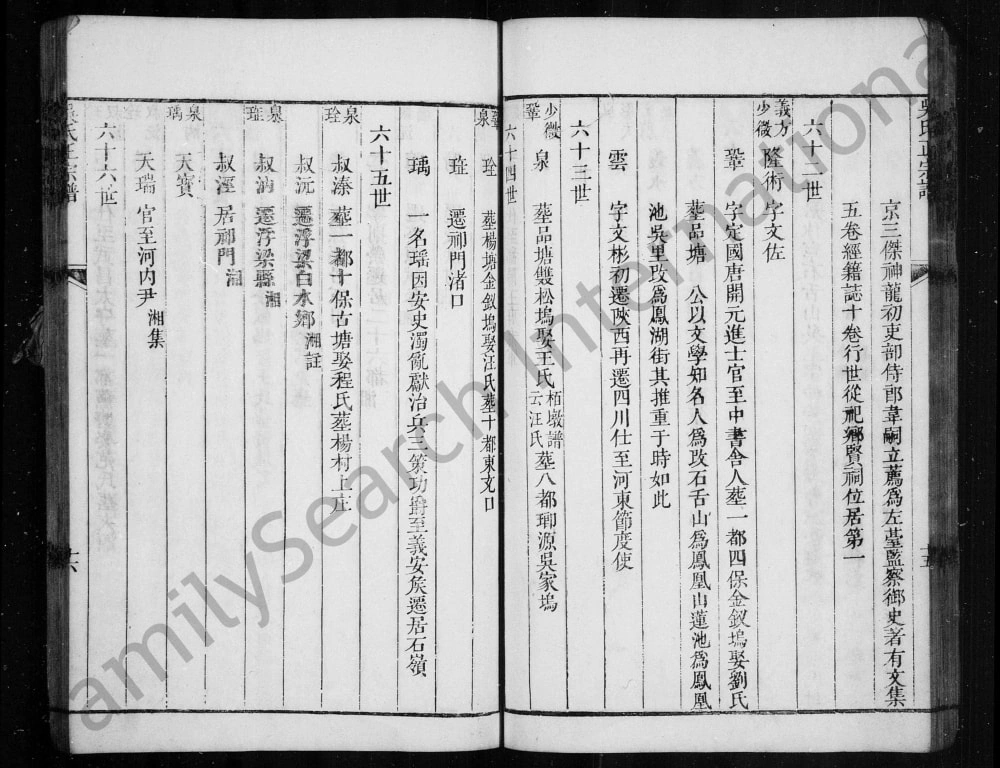 京三傑神龍初吏部侍郎韋嗣立薦為左臺監察御史著有文集
五卷經籍誌十卷行世從祀鄉賢祠位居第一
六十二世
義方
少微
隆術 字文佐
鞏 字定國唐開元進士官至中書舍人葬一都四保金釵塢娶劉氏
葬品塘 公以文學知名人為改石舌山為鳳凰山蓮池為鳳凰
池吳里改為鳳湖街其推重于時如此
雲 字文彬初遷陝西再遷四川仕至河東節度使
六十三世
少微
鞏
泉 葬品塘雙松塢娶王氏 栢墩譜云汪氏 葬八都瑯源吳家塢
六十四世
鞏
泉
㻇 葬楊塘金釵塢娶汪氏葬十都東文口
琟 遷祁門渚口
瑀 一名瑶因安史濁亂獻治兵三策功爵至義安矦遷居石嶺
六十五世
泉
㻇
叔溱 葬一都十保古塘娶程氏葬楊村上庄
叔沅 遷浮梁白水鄉 湘註
泉
琟
叔㳉 遷浮梁縣 湘
叔涇 居祁門 湘
泉
瑀
天寶
天瑞 官至河内尹 湘集
六十六世
吳氏正宗譜
十五
吳氏正宗譜
十六
FamilySearch International